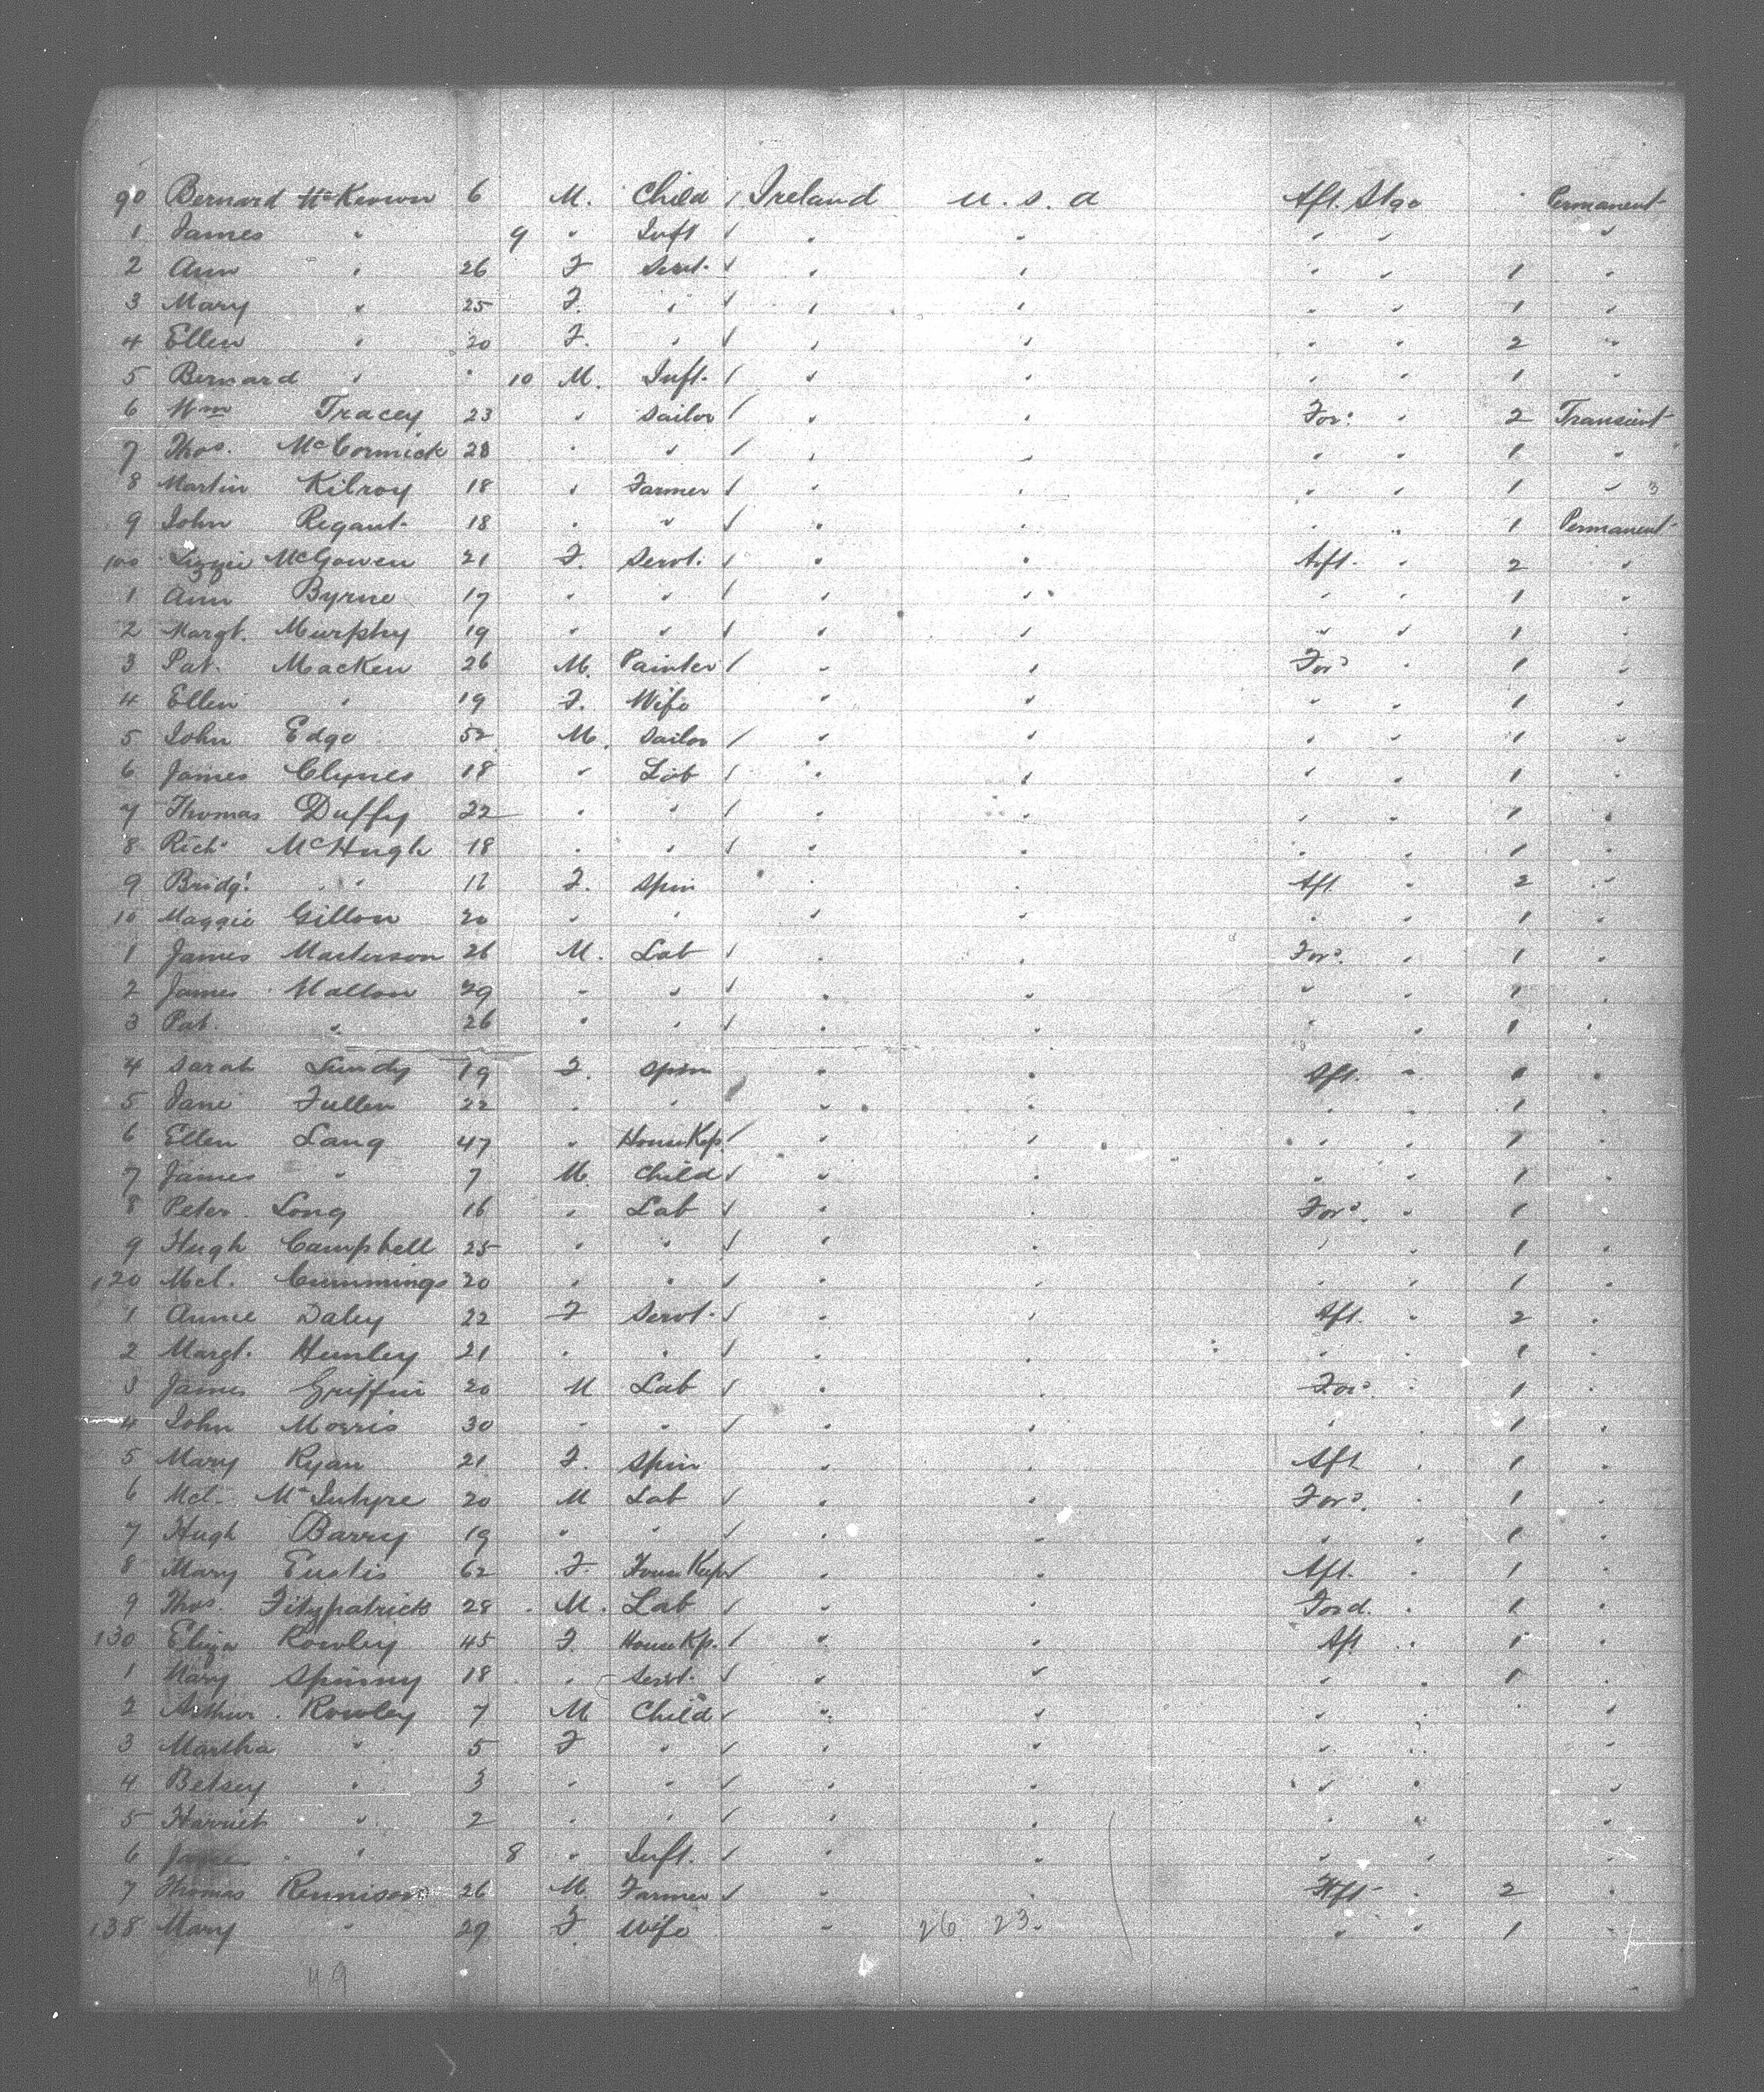 90 Bernard McKeown 6 M. Child / Ireland U.S.A Aft. Stge Permanent
1 James " 9 " Inft √ " " " " "
2 Ann " 26 F Servt. √ " " " " 1 "
3 Mary " 25 F. " √ " " " " 1 "
4 Ellen " 20 F. " / " " " " 2 "
5 Bernard " " 10 M. Inft. / " " " " 1 "
6 Wm Tracey 23 " Sailor / " " For: " 2 Transient
7 Thos. McCormick 28 " " / " " " " 1 "
8 Martin Kilroy 18 " Farmer / " " " " 1 " 3
9 John Regant 18 " " / " " " " 1 Permanent
100 Lizzie McGowen 21 F. Servt. / " " Aft. " 2 "
1 Ann Byrne 17 " " / " " " " 1 "
2 Margt. Murphy 19 " " / " " " " 1 "
3 Pat. Macken 26 M. Painter / " " Ford " 1 "
4 Ellen " 19 F. Wife " " " " 1 "
5 John Edge 52 M. Sailor / " " " " 1 "
6 James Clynes 18 " Lab / " " " " 1 "
7 Thomas Duffy 22 " " / " " " " 1 "
8 Richd McHugh 18 " " / " " " " 1 "
9 Bridgt " 16 F. Spin " " Aft " 2 "
10 Maggie Gillon 20 " " " " " " 1 "
1 James Masterson 26 M. Lab / " " Ford. " 1 "
2 James Mallon 29 " " / " " " " 1 "
3 Pat. " 26 " " / " " " " 1 "
4 Sarah Lundy 19 F. Spin " " Aft. " 1 "
5 Jane Fullen 22 " " " " " " 1 "
6 Ellen Lang 47 " House Kep. / " " " " 1 "
7 James " 7 M. Child √ " " " " 1 "
8 Peter Long 16 " Lab √ " " Ford. " 1
9 Hugh Campbell 25 " " √ " " " " 1 "
120 Mcl. Cummings 20 " " √ " " " " 1 "
1 Annie Daley 22 F Servt. √ " " Aft. " 2 "
2 Margt. Hunley 21 " " √ " " " " 1 "
3 James Griffin 20 M Lab √ " " Ford. " 1 "
4 John Morris 30 " " √ " " " 1 "
5 Mary Ryan 21 F. Spin " " Aft " 1 "
6 Mcl. McIntyre 20 M Lab √ " " Ford. " 1 "
7 Hugh Barry 19 " " √ " " " " 1 "
8 Mary Eustis 62 F. House Kepr √ " " Aft. " 1 "
9 Thos. Fitzpatrick 28 M. Lab √ " " Ford. " 1 "
130 Eliza Rowley 45 F. House Kp. / " " Aft " 1 "
1 Mary Spinny 18 " Servt. √ " " " " 1 "
2 Arthur Rowley 7 M Child √ " " " " "
3 Martha " 5 F " √ " " " " "
4 Betsey " 3 " " √ " " " " "
5 Harriet " 2 " " √ " " " " "
6 " 8 " Inft. √ " " " " "
7 Thomas Rennison 26 M. Farmer √ " " Aft " 2 "
138 Mary " 29 F. Wife " 26. 23. " " 1 "
49